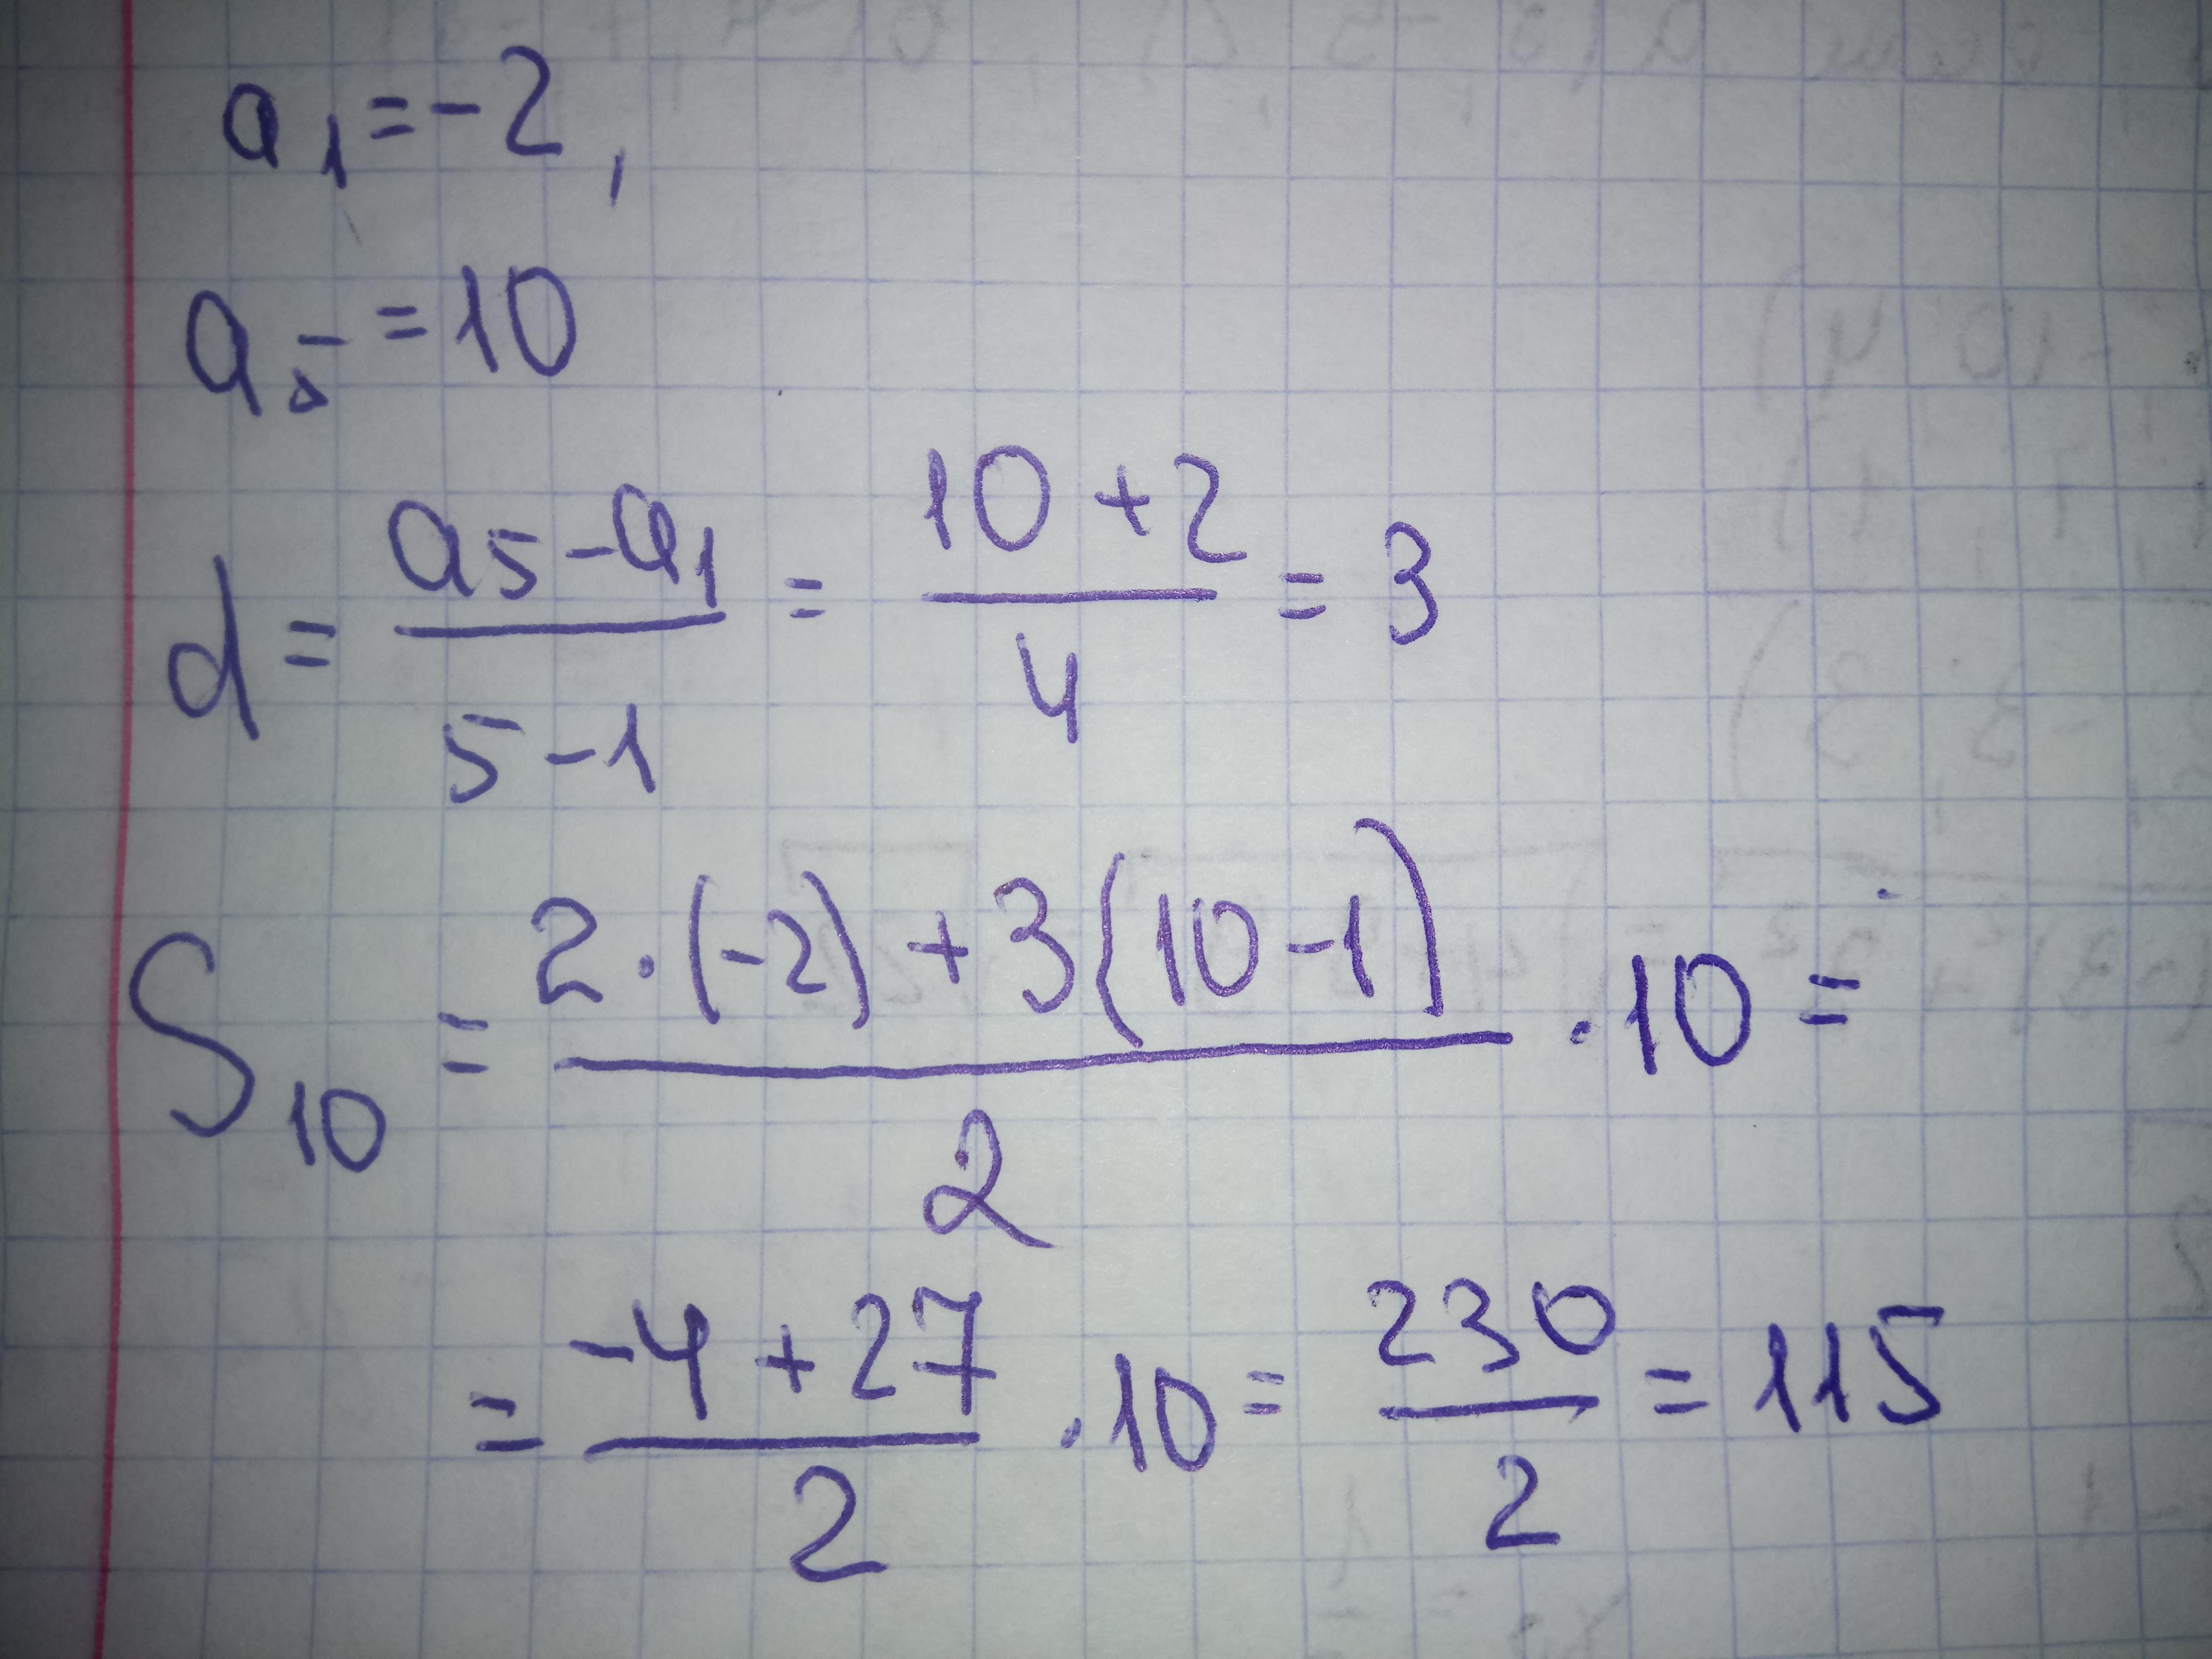 a₁ = -2,
a₅ = 10
d = (a₅ - a₁)/(5 - 1) = (10 + 2)/4 = 3
S₁₀ = (2 · (-2) + 3(10 - 1))/2 · 10 =
= (-4 + 27)/2 · 10 = 230/2 = 115